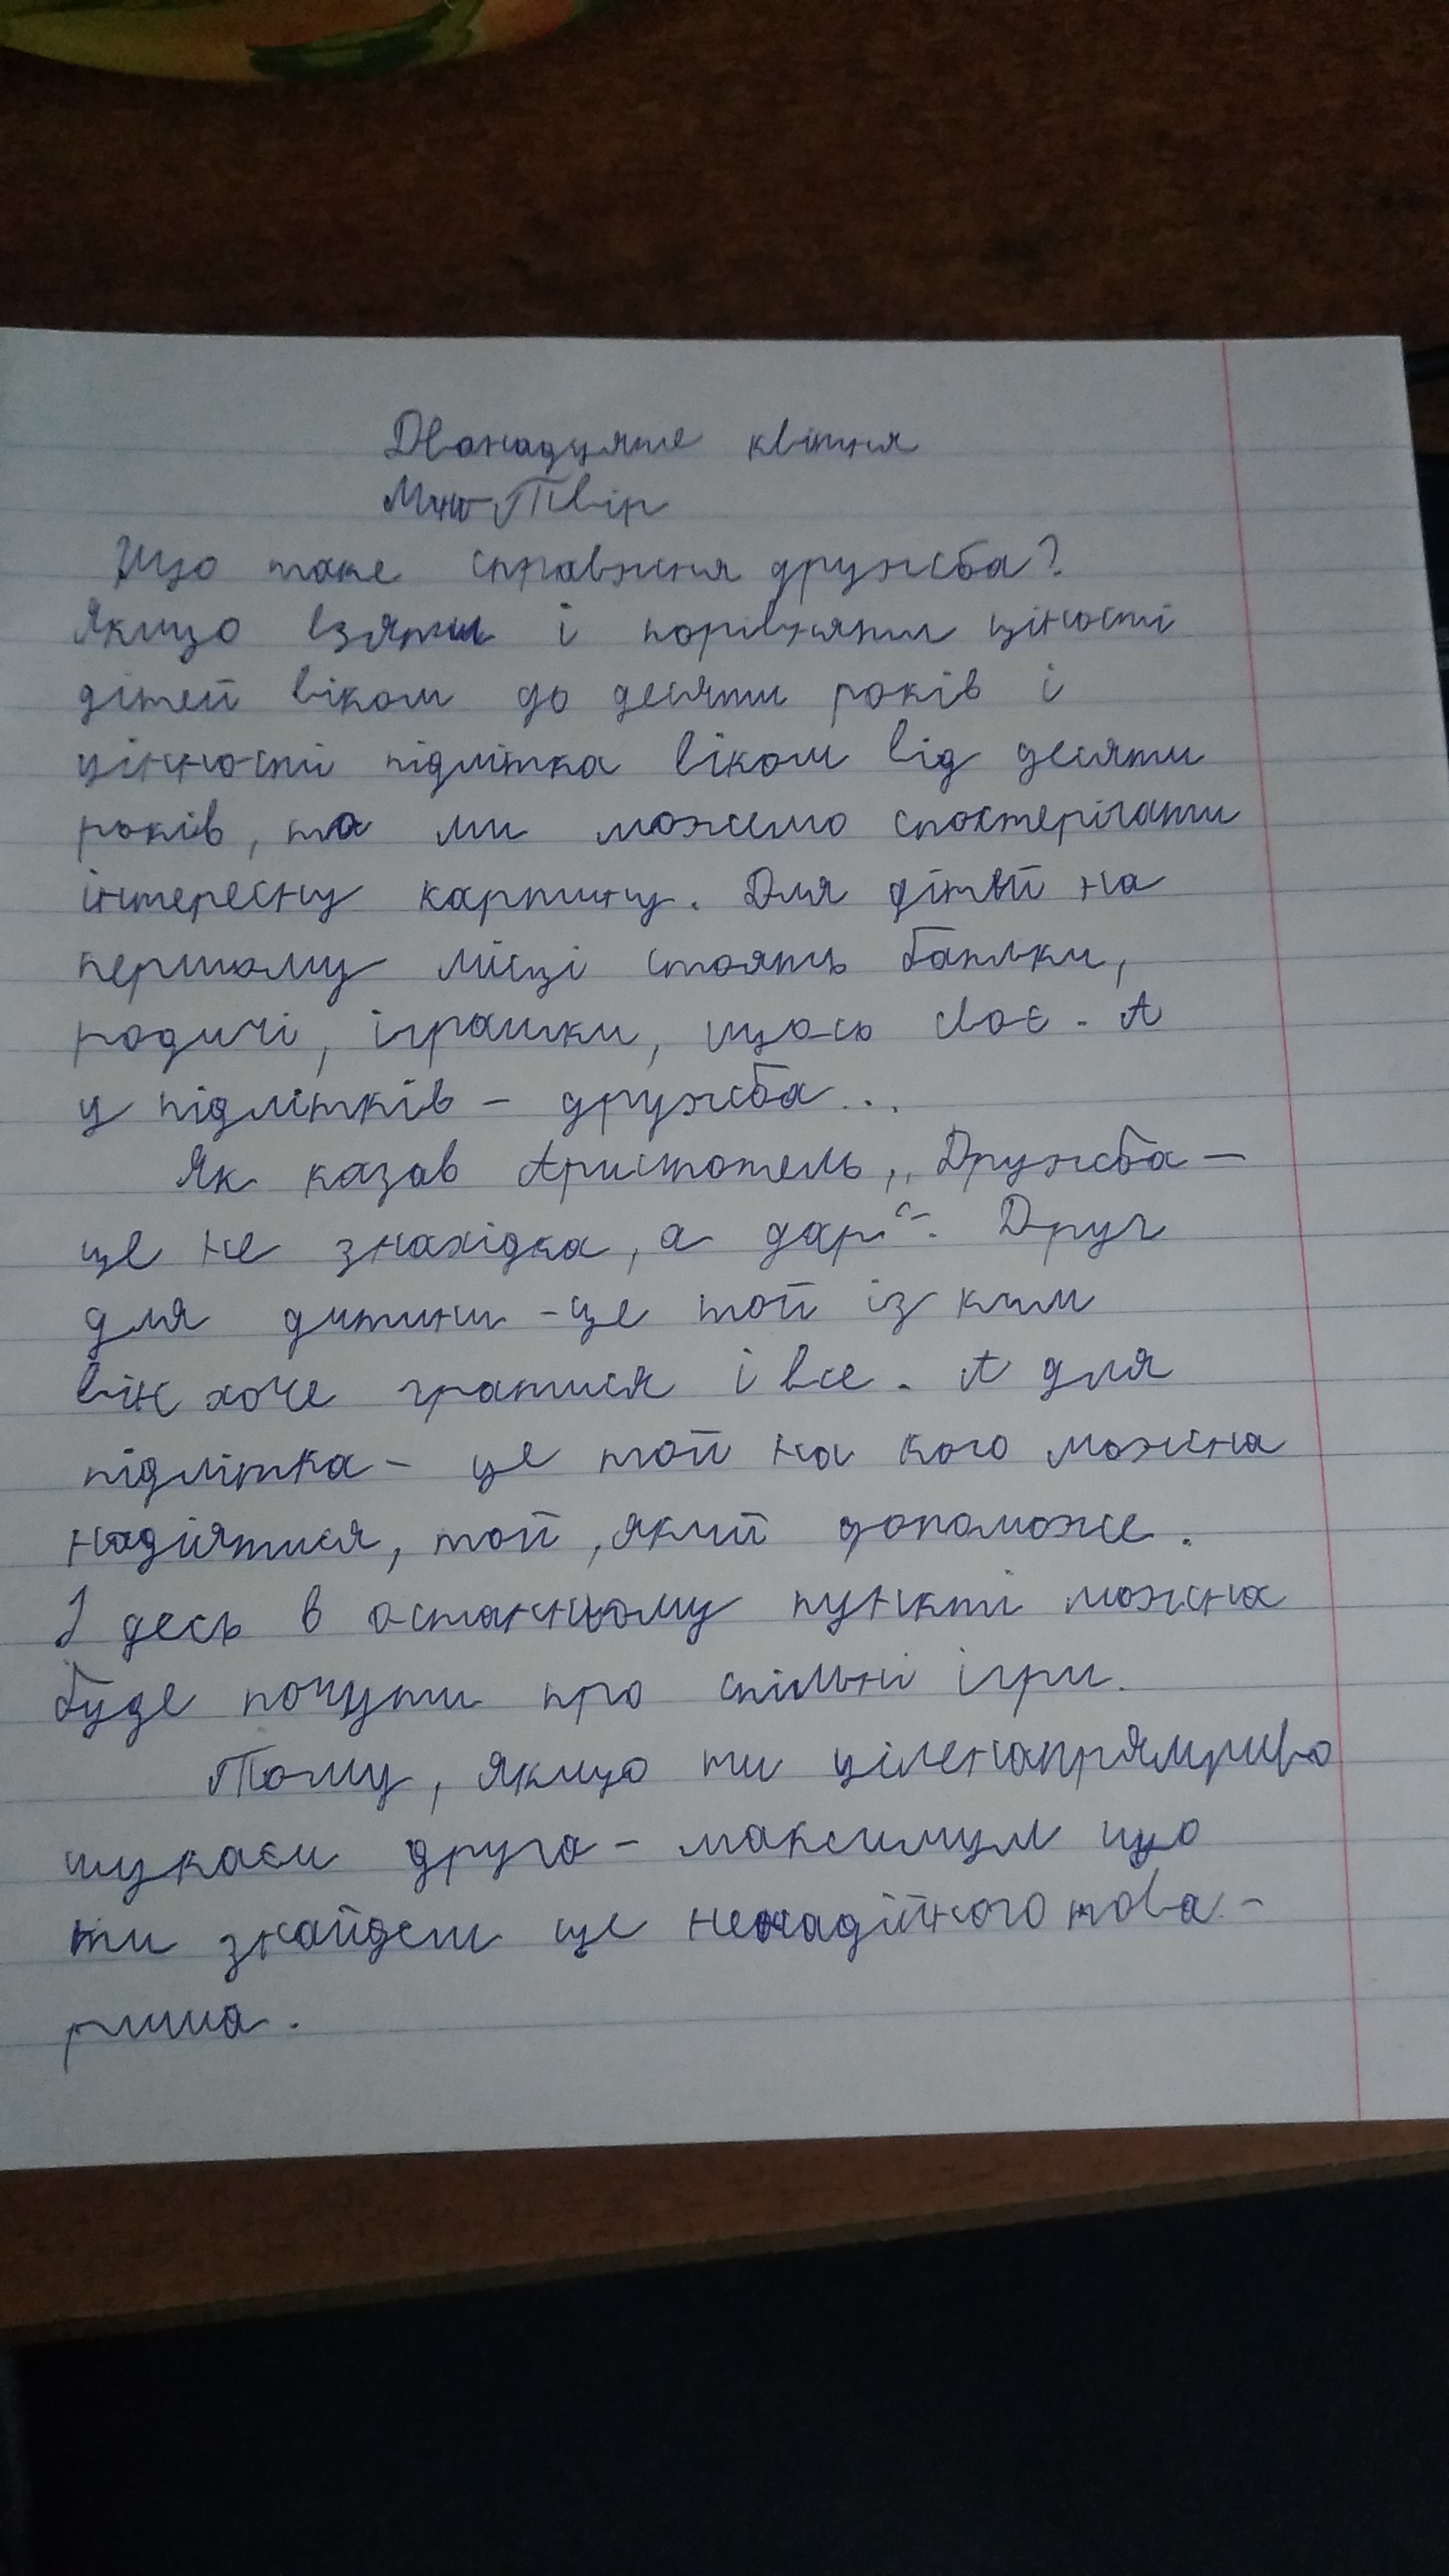 Дванадцяте квітня
Міні-Твір
Що таке справжня дружба?
Якщо взяти і порівняти цінності
дітей віком до десяти років і
цінності підлітка віком від десяти
років, то ми можемо спостерігати
інтересну картину. Для дітей на
першому місці стоять батьки,
родичі, іграшки, щось своє. А
у підлітків – дружба...
Як казав Аристотель, „Дружба –
це не знахідка, а дар“. Друг
для дитини – це той із ким
він хоче гратися і все. А для
підлітка – це той на кого можна
надіятися, той, який допоможе.
І десь в останньому пункті можна
буде почути про спільні ігри.
Тому, якщо ти
шукаєш друга – максимум що
ти знайдеш це ненадійного това-
риша.